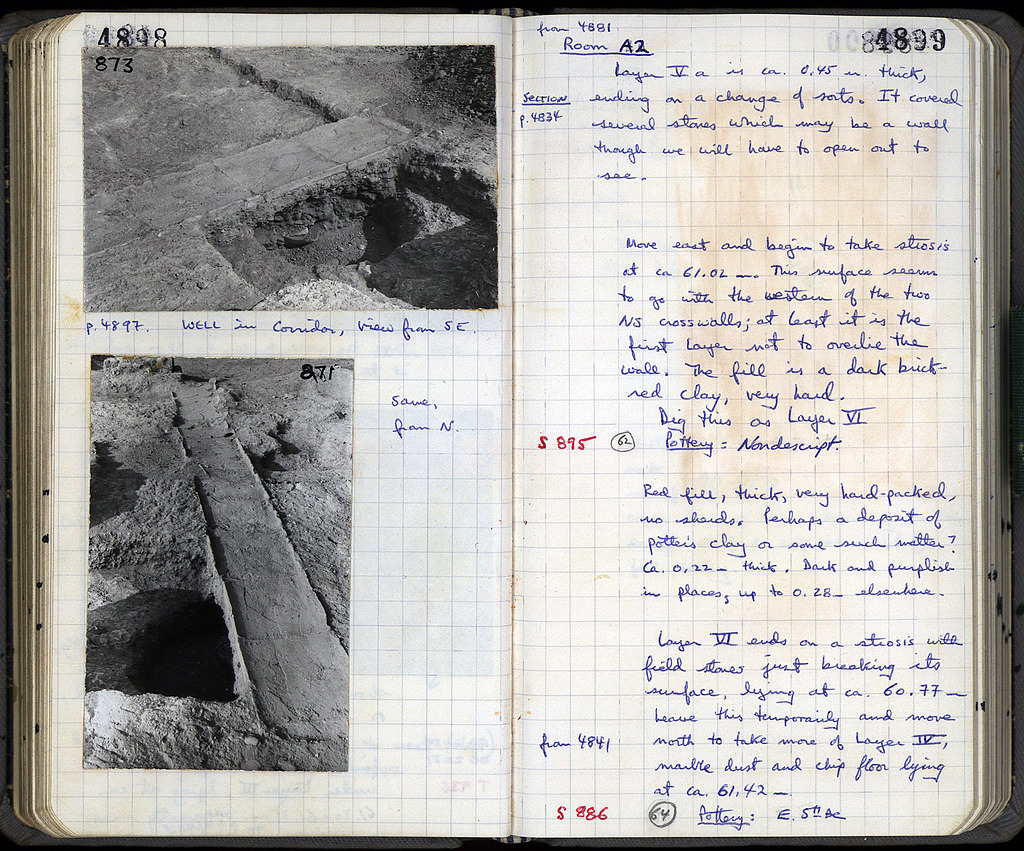 4898
873
p. 4897. WELL in Corridor, view from SE.
871
Same,
from N.
from 4881
4899
Room A2
Layer V a is ca. 0.45 m. thick,
SECTION
p. 4834
ending on a change of sorts. It covered
several stones which may be a wall
though we will have to open out to
see.
Move east and begin to take strosis
at ca 61.02 m. This surface seems
to go with the western of the two
NS crosswalls; at least it is the
first layer not to overlie the
wall. The fill is a dark brick-
red clay, very hard.
Dig this as Layer VI
S 895 62 Pottery: Nondescript.
Red fill, thick, very hard-packed,
no sherds. Perhaps a deposit of
potter's clay or some such matter?
Ca. 0.22 m thick. Dark and purplish
in places, up to 0.28 m elsewhere.
Layer VI ends on a strosis with
field stones just breaking its
surface, lying at ca. 60.77 m
Leave this temporarily and move
from 4841
north to take more of Layer IV,
marble dust and chip floor lying
at ca. 61.42 m.
S 886 64 Pottery: E. 5th BC